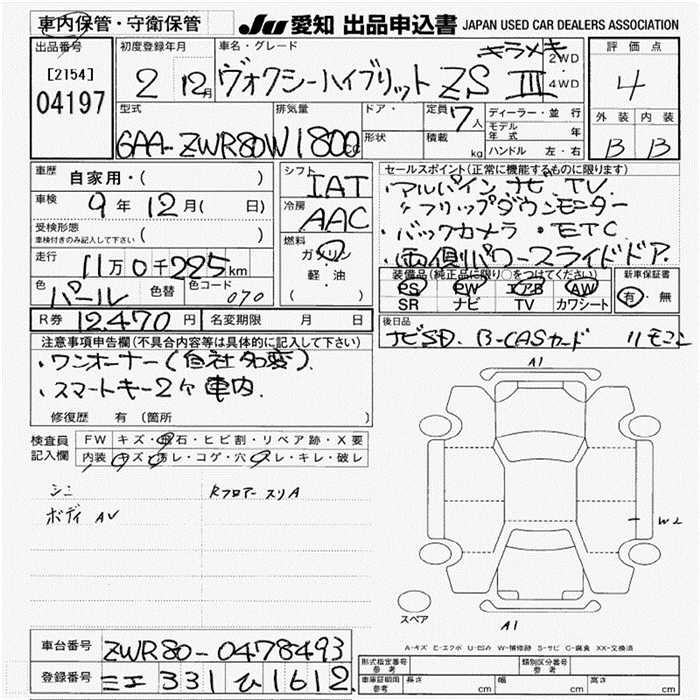 車内保管・守衛保管
JU 愛知 出品申込書 JAPAN USED CAR DEALERS ASSOCIATION
出品番号 初度登録年月 車名・グレード 評価点
[2154]
04197
2 12月 ヴォクシーハイブリット ZS キラメキ III
2WD
・
4WD
4
型式 排気量 ドア・ 定員 7人 ディーラー・並行 外装 内装
6AA-ZWR80W 1800cc
形状 積載 kg
モデル年式 年
ハンドル 左・右
B B
車歴 自家用・( )
車検 9年12月( 日)
受検形態
車検付きのみ記入して下さい ( )
走行 11万0千225km
色 パール 色替 色コード 070
R券 12,470円 名変期限 月 日
シフト IAT
冷房 AAC
燃料 ガソリン
軽・油
( )
セールスポイント(正常に機能するものに限ります)
・アルパインナビ、TV.
〃フリップダウンモニター
・バックカメラ・ETC
・両側パワースライドドア.
装備品(純正品に限り○をつけてください) 新車保証書
PS PW エアB AW 有・無
SR ナビ TV カワシート
後日品
ナビSD. B-CASカード リモコン
注意事項申告欄(不具合内容等は具体的に記入して下さい)
・ワンオーナー(自社名変).
・スマートキー2ケ車内
修復歴 有 (箇所 )
検査員記入欄
FW キズ・飛石・ヒビ割・リペア跡・X要
内装 キズ・汚レ・コゲ・穴・スレ・キレ・破レ
シミ RフロアースリA
ボディ AV
A1
W2
スペア
A1
A-キズ E-エクボ U-凹み W-補修跡 S-サビ C-腐食 XX-交換済
車台番号 ZWR80-0478493
登録番号 ミエ 331 ひ 1612
形式指定番号 参考 類別区分番号 参考
車庫証明用 参考 長さ cm 幅 cm 高さ cm